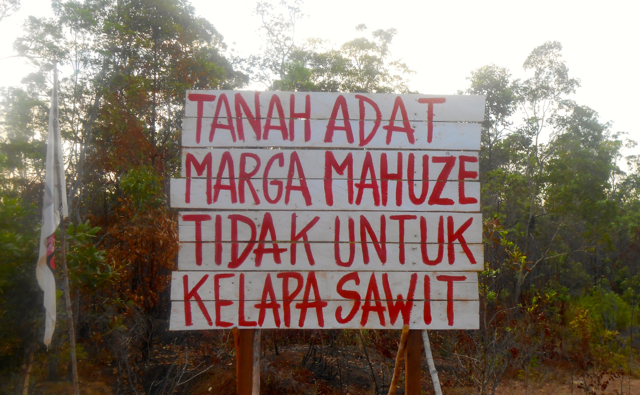 TANAH ADAT
MARGA MAHUZE
TIDAK UNTUK
KELAPA SAWIT